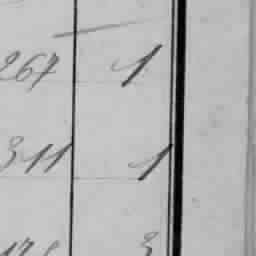 267 1
311 1
3